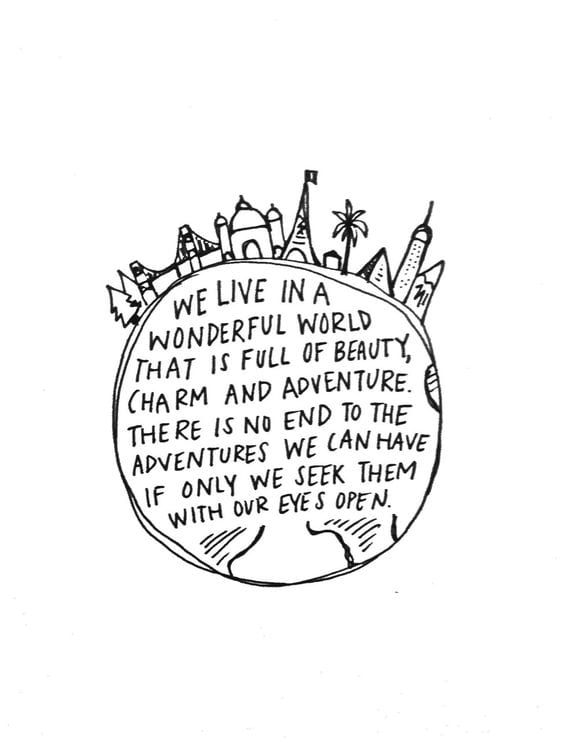 WE LIVE IN A
WONDERFUL WORLD
THAT IS FULL OF BEAUTY,
CHARM AND ADVENTURE.
THERE IS NO END TO THE
ADVENTURES WE CAN HAVE
IF ONLY WE SEEK THEM
WITH OUR EYES OPEN.